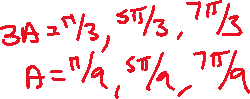 3A = π/3, 5π/3, 7π/3
A = π/9, 5π/9, 7π/9